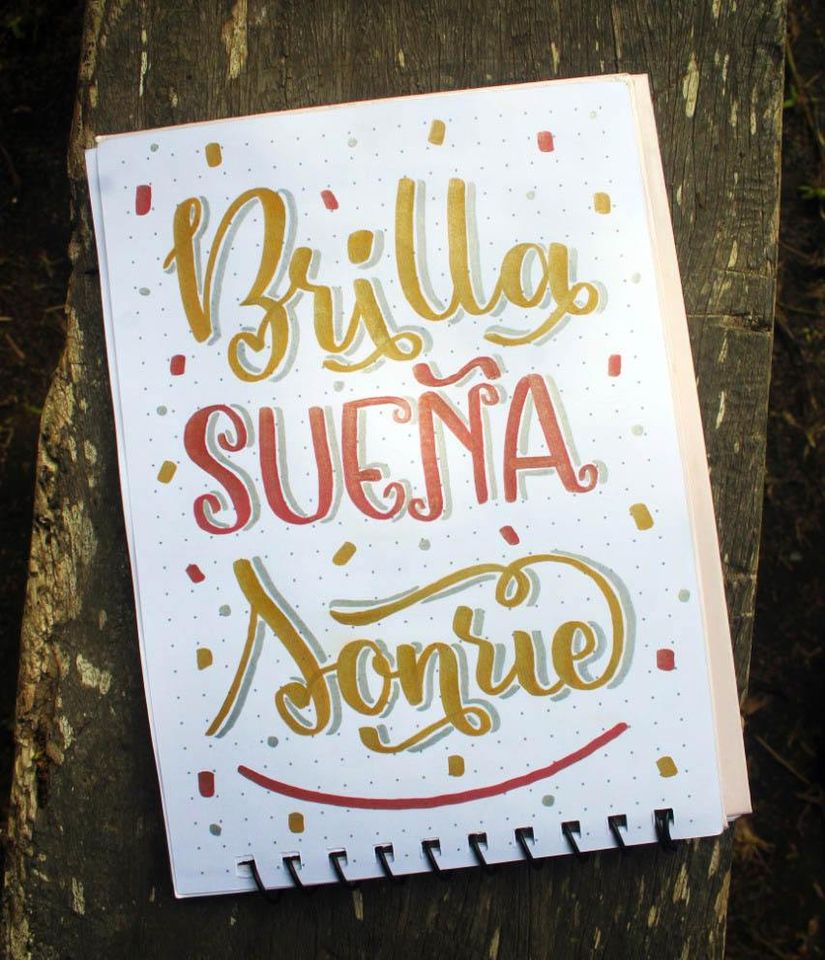 Brilla
SUEÑA
Sonrie